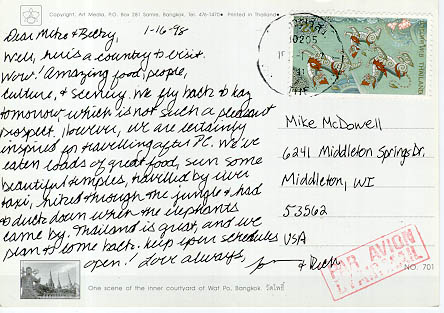 Copyright, Art Media, P.O. Box 281 Samre, Bangkok. Tel. 476-1470• Printed in Thailand•
Dear Mike & Becky, 1-16-98
Well, here's a country to visit.
Wow! Amazing food, people,
culture, & scenery. We fly back to
tomorrow which is not such a pleasant
prospect. However, we are certainly
inspired for travelling after P.C. We've
eaten loads of great food, seen some
beautiful temples, travelled by river
taxi, hiked through the jungle & had
to duck down when the elephants
came by. Thailand is great, and we
plan to come back. Keep your schedules
open! Love always, & Rich
Mike McDowell
6241 Middleton Springs Dr.
Middleton, WI
53562
USA
THAILAND
10205
PAR AVION
NO. 701
One scene of the inner courtyard of Wat Po, Bangkok. วัดโพธิ์